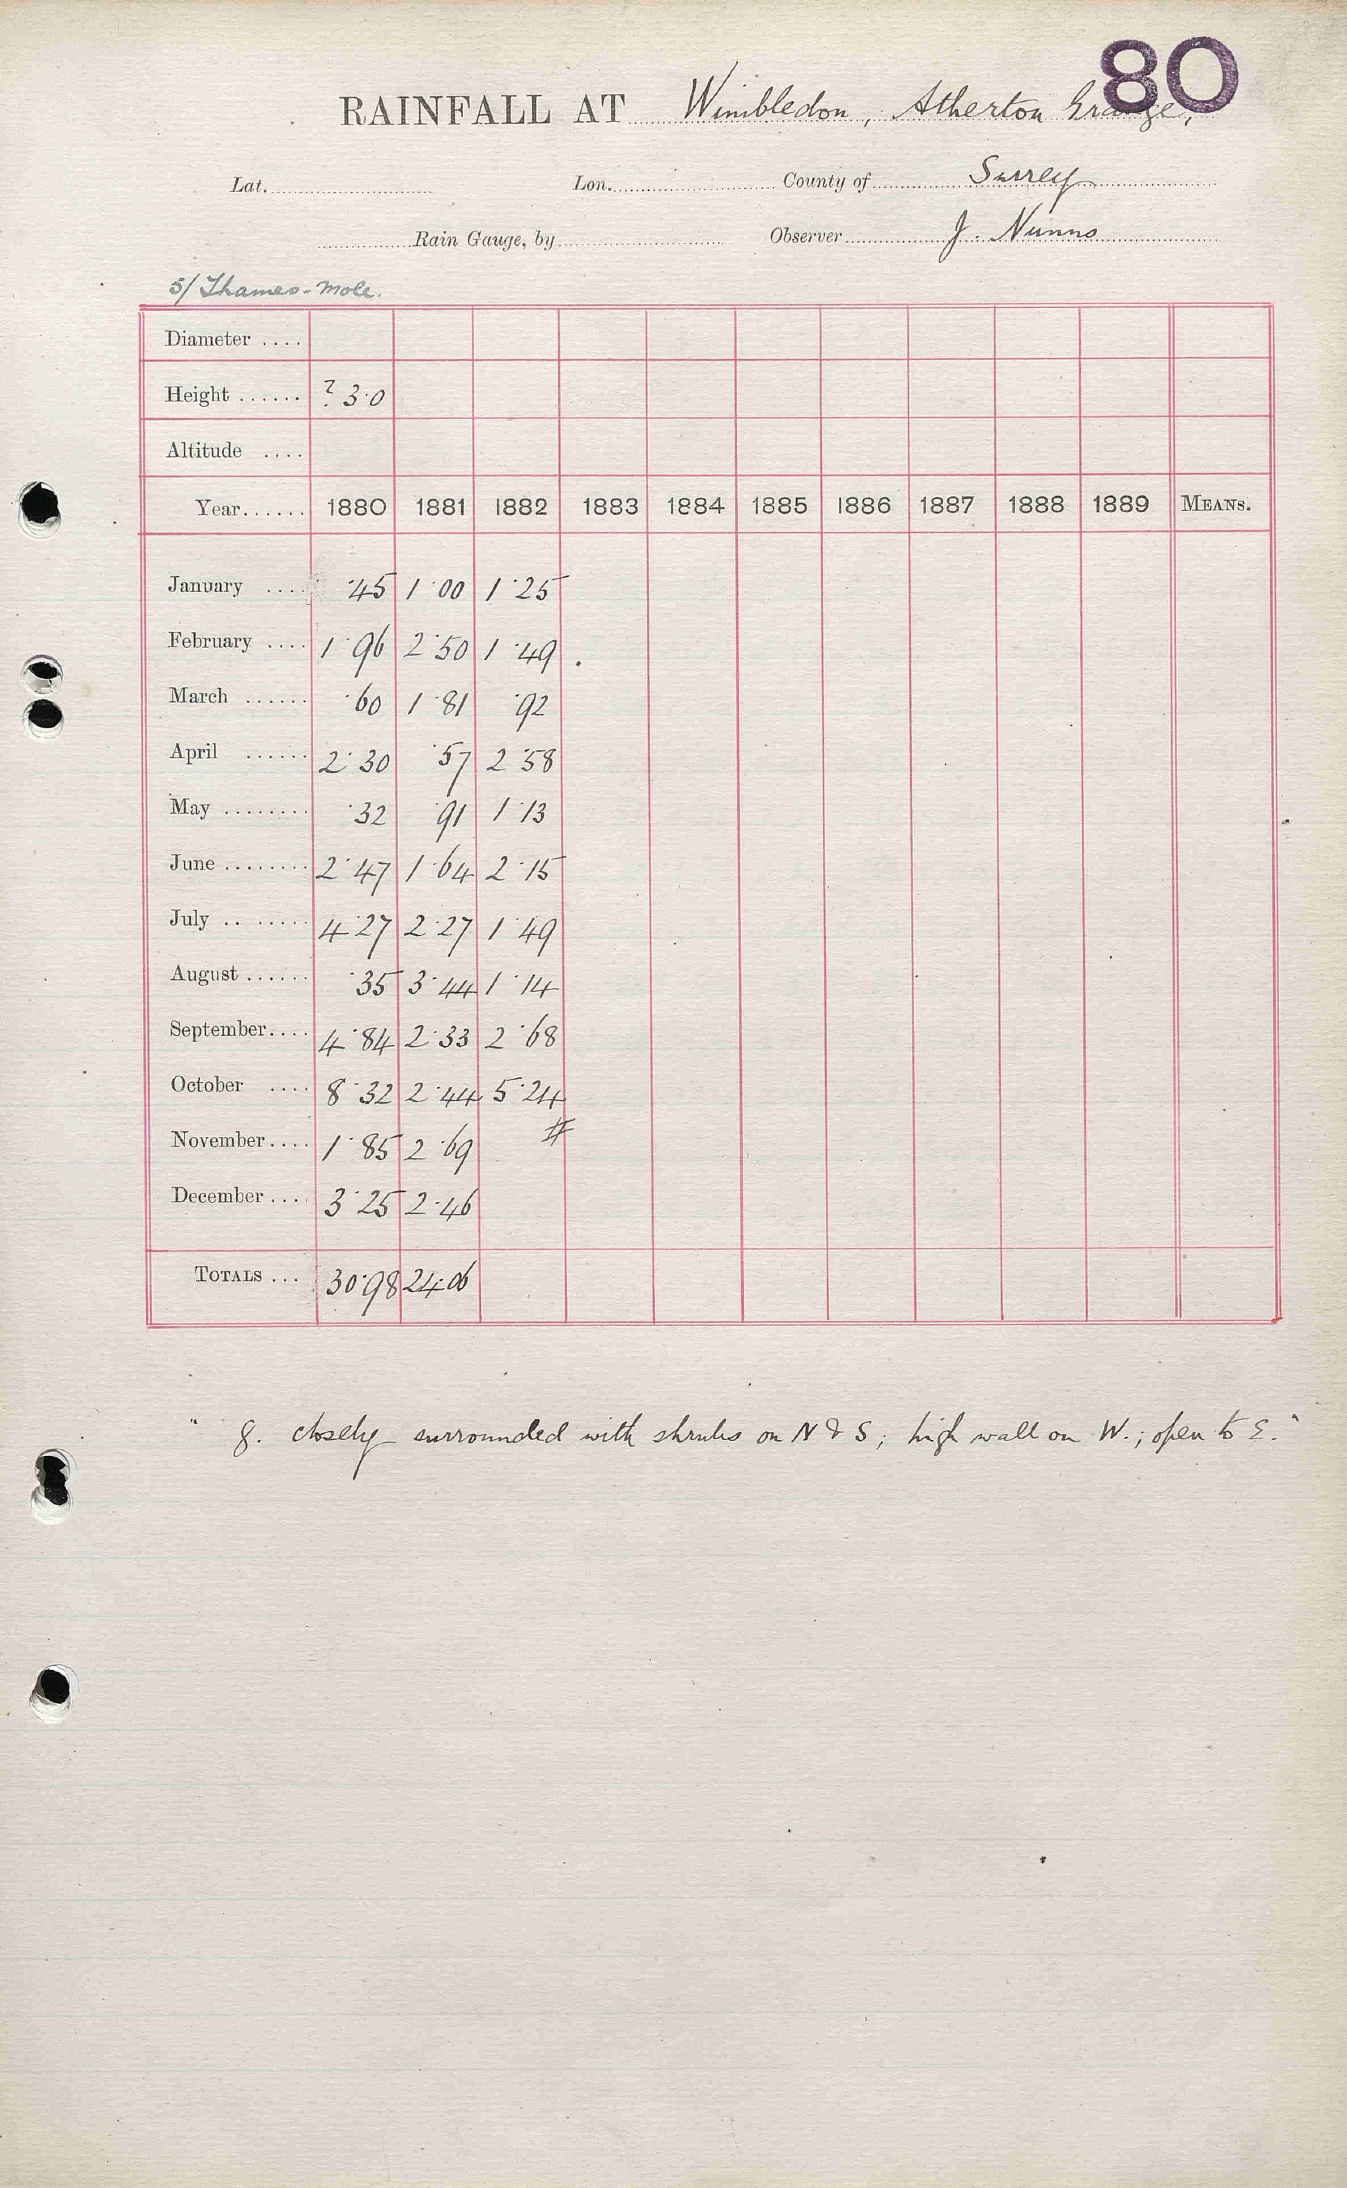 80
RAINFALL AT Wimbledon, Atherton Grange,
Lat. Lon. County of Surrey
Rain Gauge, by Observer J. Nunns
5/ Thames-Mole.
Diameter ....
Height ...... ? 3·0
Altitude ....
Year...... 1880 1881 1882 1883 1884 1885 1886 1887 1888 1889 MEANS.
January .... ·45 1·00 1·25
February .... 1·96 2·50 1·49 .
March ...... ·60 1·81 ·92
April ...... 2·30 ·57 2·58
May ........ ·32 ·91 1·13
June ........ 2·47 1·64 2·15
July .. ...... 4·27 2·27 1·49
August ...... ·35 3·44 1·14
September.... 4·84 2·33 2·68
October .... 8·32 2·44 5·24
November.... 1·85 2·69 #
December .... 3·25 2·46
TOTALS ... 30·98 24·06
" g. closely surrounded with shrubs on N & S; high wall on W.; open to E."